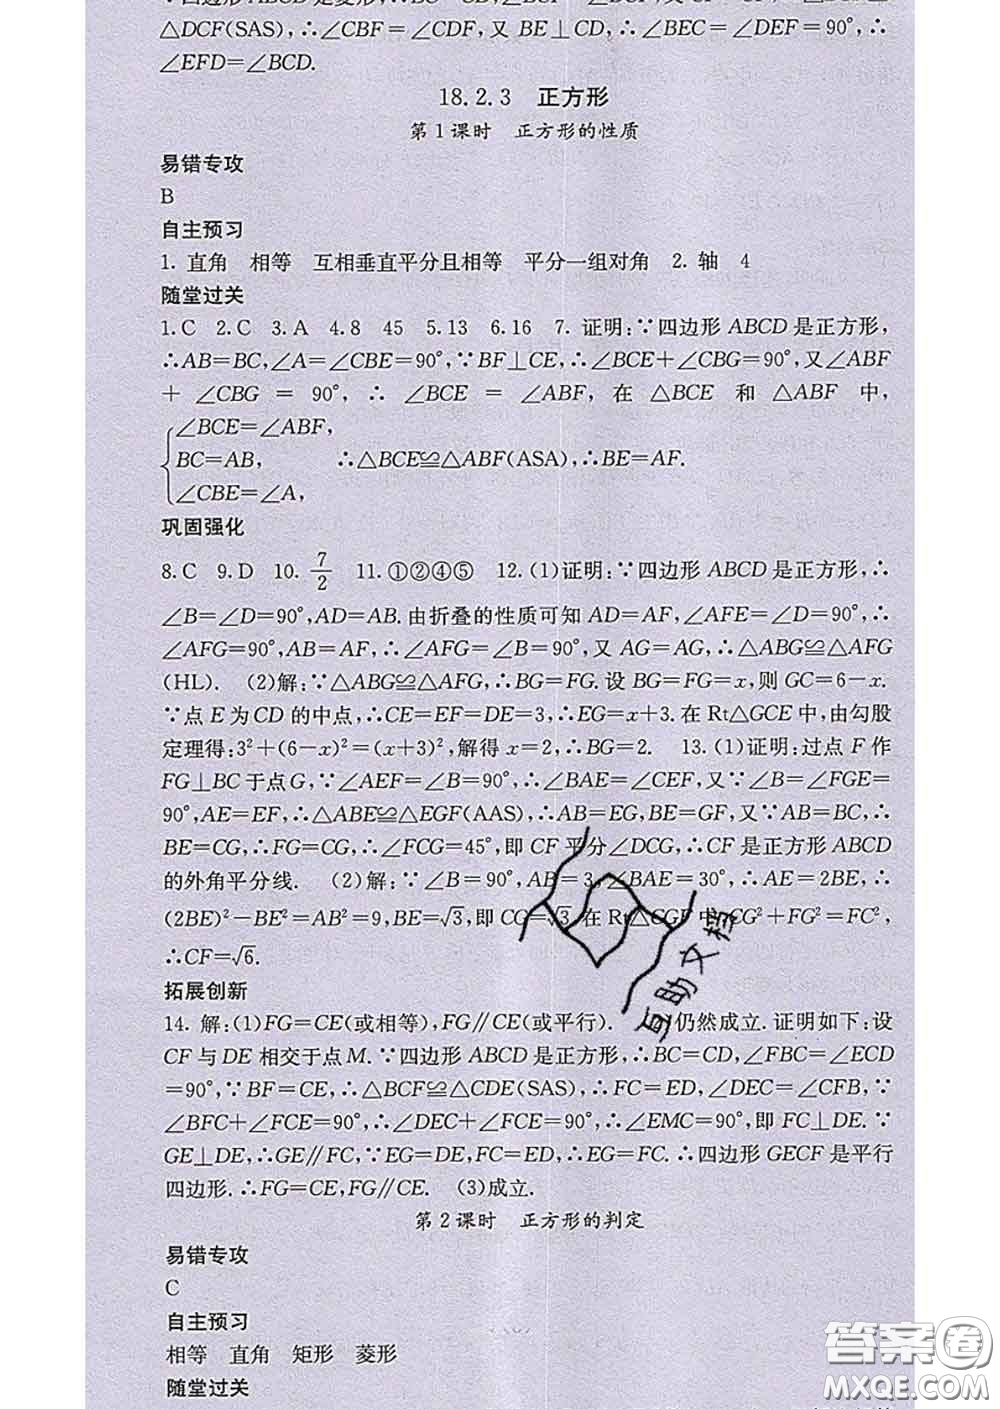 △DCF(SAS),∴∠CBF=∠CDF,又 BE⊥CD,∴∠BEC=∠DEF=90°,∴
∠EFD=∠BCD.
18.2.3 正方形
第1课时 正方形的性质
易错专攻
B
自主预习
1. 直角 相等 互相垂直平分且相等 平分一组对角 2. 轴 4
随堂过关
1.C 2.C 3.A 4.8 45 5.13 6.16 7. 证明:∵四边形 ABCD 是正方形,
∴AB=BC,∠A=∠CBE=90°,∵BF⊥CE,∴∠BCE+∠CBG=90°,又∠ABF
+ ∠CBG = 90°, ∴ ∠BCE = ∠ABF, 在 △BCE 和 △ABF 中,
∠BCE=∠ABF,
BC=AB, ∴△BCE≌△ABF(ASA),∴BE=AF.
∠CBE=∠A,
巩固强化
8.C 9.D 10. 7/2 11.①②④⑤ 12.(1)证明:∵四边形 ABCD 是正方形,∴
∠B=∠D=90°,AD=AB.由折叠的性质可知 AD=AF,∠AFE=∠D=90°,∴
∠AFG=90°,AB=AF,∴∠AFG=∠B=90°,又 AG=AG,∴△ABG≌△AFG
(HL). (2)解:∵△ABG≌△AFG,∴BG=FG.设 BG=FG=x,则 GC=6-x.
∵点 E 为 CD 的中点,∴CE=EF=DE=3,∴EG=x+3.在 Rt△GCE 中,由勾股
定理得:3²+(6-x)²=(x+3)²,解得 x=2,∴BG=2. 13.(1)证明:过点 F 作
FG⊥BC 于点 G,∵∠AEF=∠B=90°,∴∠BAE=∠CEF,又∵∠B=∠FGE=
90°,AE=EF,∴△ABE≌△EGF(AAS),∴AB=EG,BE=GF,又∵AB=BC,∴
BE=CG,∴FG=CG,∴∠FCG=45°,即 CF 平分∠DCG,∴CF 是正方形 ABCD
的外角平分线. (2)解:∵∠B=90°,AB=3,∠BAE=30°,∴AE=2BE,∴
(2BE)²-BE²=AB²=9,BE=√3,即 CG=√3.在 Rt△CGF 中,CG²+FG²=FC²,
∴CF=√6.
拓展创新
14. 解:(1)FG=CE(或相等),FG∥CE(或平行). 仍然成立.证明如下:设
CF 与 DE 相交于点 M.∵四边形 ABCD 是正方形,∴BC=CD,∠FBC=∠ECD
=90°,∵BF=CE,∴△BCF≌△CDE(SAS),∴FC=ED,∠DEC=∠CFB,∵
∠BFC+∠FCE=90°,∴∠DEC+∠FCE=90°,∴∠EMC=90°,即 FC⊥DE.∵
GE⊥DE,∴GE∥FC,∵EG=DE,FC=ED,∴EG=FC.∴四边形 GECF 是平行
四边形.∴FG=CE,FG∥CE. (3)成立.
第2课时 正方形的判定
易错专攻
C
自主预习
相等 直角 矩形 菱形
随堂过关
互助文档
答案卷
MXQE.COM